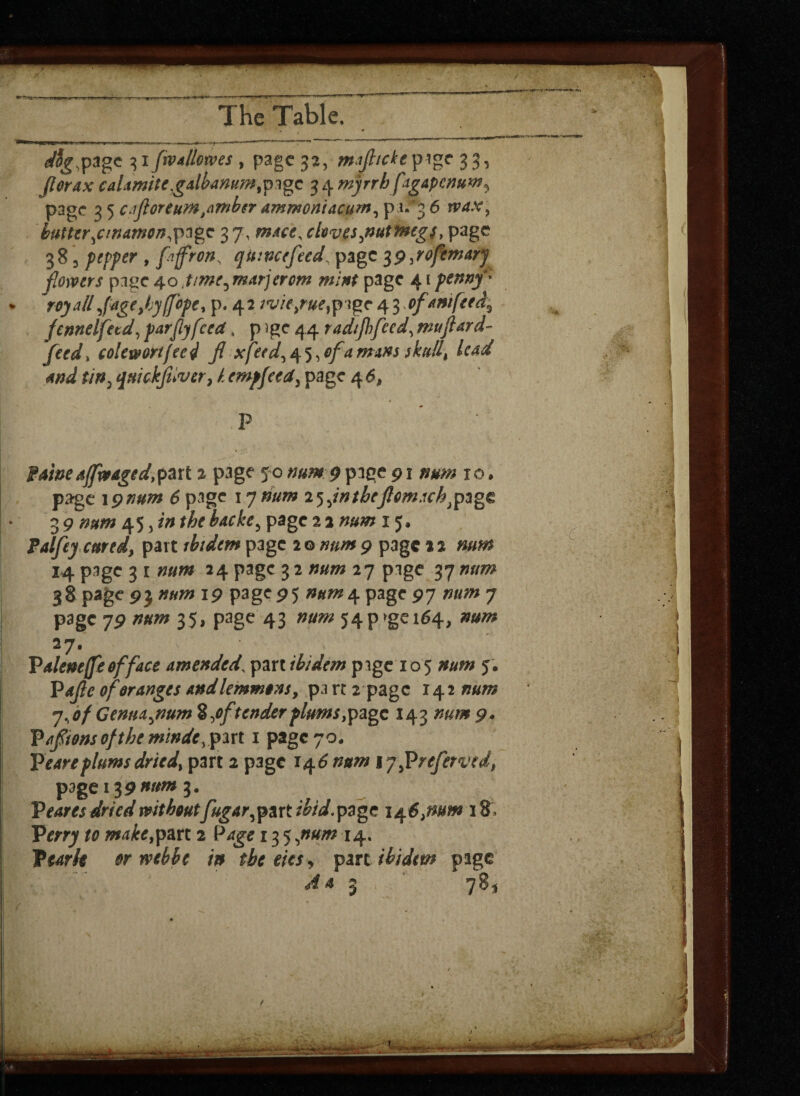 The Table.
dog, page 31 ſwallowes, page 32, maſticke page 33,
ſtorax calamite, galbanum, page 34 myrrh ſagapenum,
page 35 caſtoreum, amber ammoniacum, pa. 36 wax,
butter, cinamon, page 37, mace, cloves, nutmegs, page
38, pepper, ſaffron, quinceſeed, page 39, roſemary
flowers page 40, time, marjerom mint page 41 penny-
royall, ſage, hyſſope, p. 42 ivie, rue, page 43 of aniſeed,
fennelſeed, parſlyſeed, page 44 radiſhſeed, muſtard-
ſeed, colewortſeed flaxſeed, 45, of a mans skull, lead
and tin, quickſilver, hempſeed, page 46,
P
Paine aſſwaged, part 2 page 50 num 9 page 91 num 10.
page 19 num 6 page 17 num 25, in the ſtomach, page
39 num 45, in the backe, page 22 num 15.
Palſey cured, part ibidem page 20 num 9 page 22 num
14 page 31 num 24 page 32 num 27 page 37 num
38 page 93 num 19 page 95 num 4 page 97 num 7
page 79 num 35, page 43 num 54 page 164, num
27.
Paleneſſe of face amended, part ibidem page 105 num 5.
Paſte of oranges and lemmons, part 2 page 142 num
7, of Genua, num 8, of tender plums, page 143 num 9.
Paſsions of the minde, part 1 page 70.
Peare plums dried, part 2 page 146 num 17, Preſerved,
page 139 num 3.
Peares dried without ſugar, part ibid. page 146, num 18.
Perry to make, part 2 Page 135, num 14.
Pearle or webbe in the eies, part ibidem page
Aa 3 78,